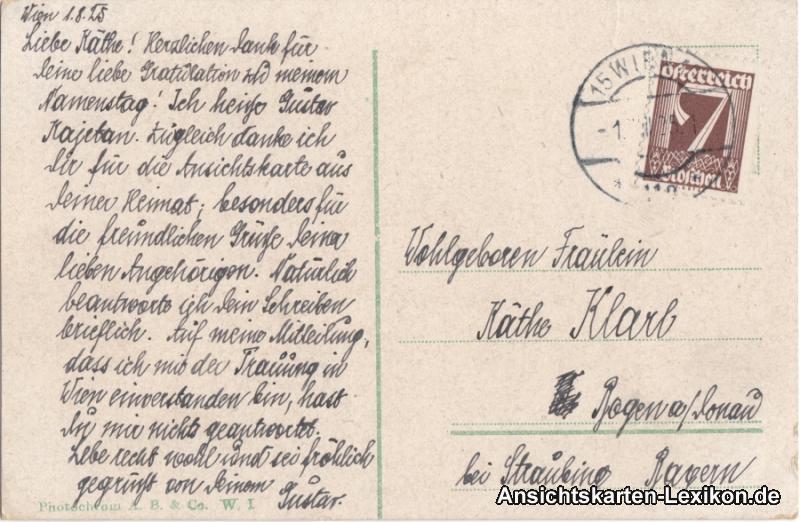 Wien 1.8.25
Liebe Käthe! Herzlichen Dank für
deine liebe Gratulation zu meinem
Namenstag! Ich heiße Gustav
Kajetan. Zugleich danke ich
Dir für die Ansichtskarte aus
deiner Heimat; besonders für
die freundlichen Grüße deiner
lieben Angehörigen. Natürlich
beantworte ich dein Schreiben
brieflich. Auf meine Mitteilung,
dass ich mit der Trauung in
Wien einverstanden bin, hast
du mir nichts geantwortet.
Lebe recht wohl und sei fröhlich
gegrüßt von deinem
Gustav.
Photochrom A. B. & Co. W. I
15 WIEN
Österreich
7
Groschen
Wohlgeboren Fräulein
Käthe Klarl
Bogen a/Donau
bei Straubing Bayern
Ansichtskarten-Lexikon.de